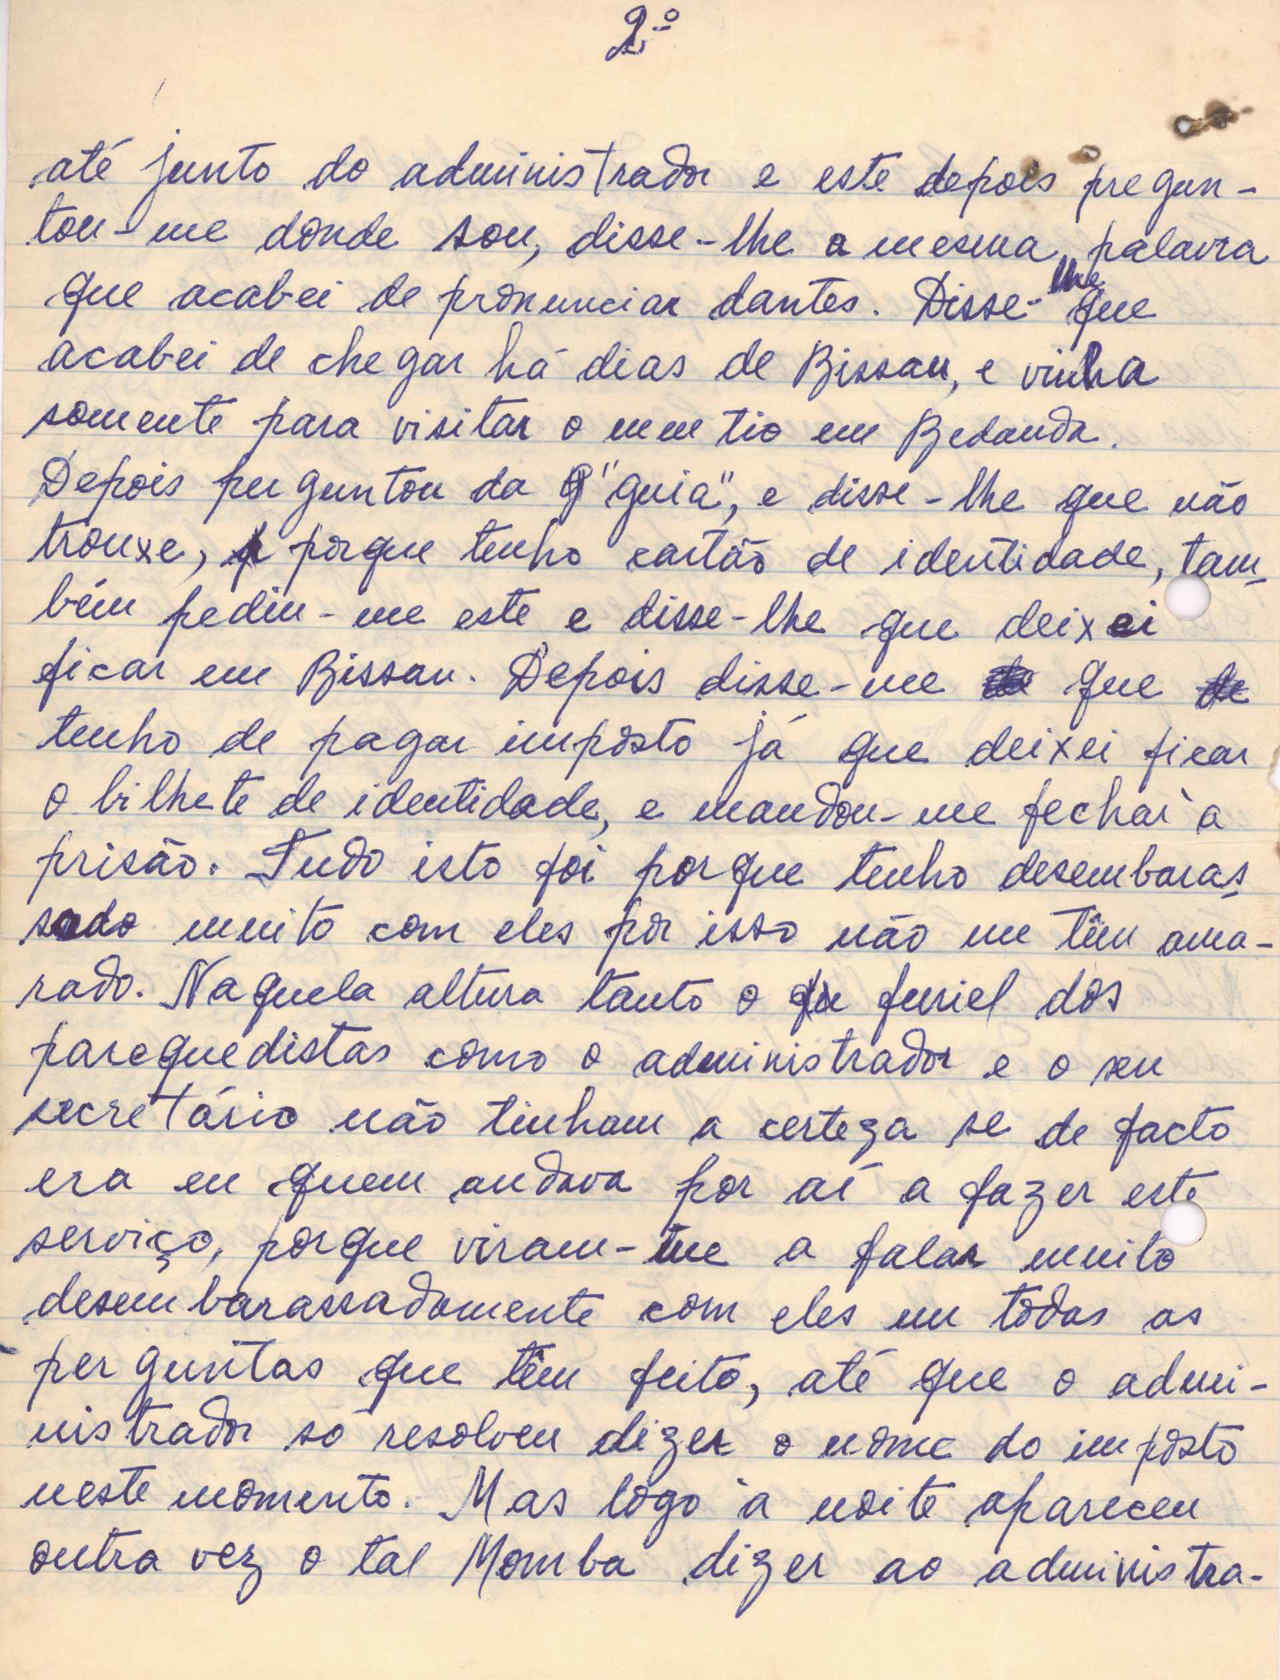 2.º
até junto do administrador e este depois pregun-
tou-me donde sou, disse-lhe a mesma palavra
que acabei de pronunciar dantes. Disse-lhe que
acabei de chegar há dias de Bissau, e vinha
somente para visitar o meu tio em Bedanda.
Depois perguntou da "guia", e disse-lhe que não
trouxe, porque tenho cartão de identidade, tam-
bém pediu-me este e disse-lhe que deixei
ficar em Bissau. Depois disse-me que
tenho de pagar impôsto já que deixei ficar
o bilhete de identidade, e mandou-me fechar à
prisão. Tudo isto foi porque tenho desembaras-
sado muito com eles por isso não me têm ama-
rado. Naquela altura tanto o furiel dos
parequedistas como o administrador e o seu
secretário não tinham a certeza se de facto
era eu quem andava por aí a fazer este
serviço, porque viram-me a falar muito
desembarassadamente com eles em todas as
perguntas que têm feito, até que o admi-
nistrador só resolveu dizer o nome do impôsto
neste momento. Mas logo à noite apareceu
outra vez o tal Momba dizer ao administra-